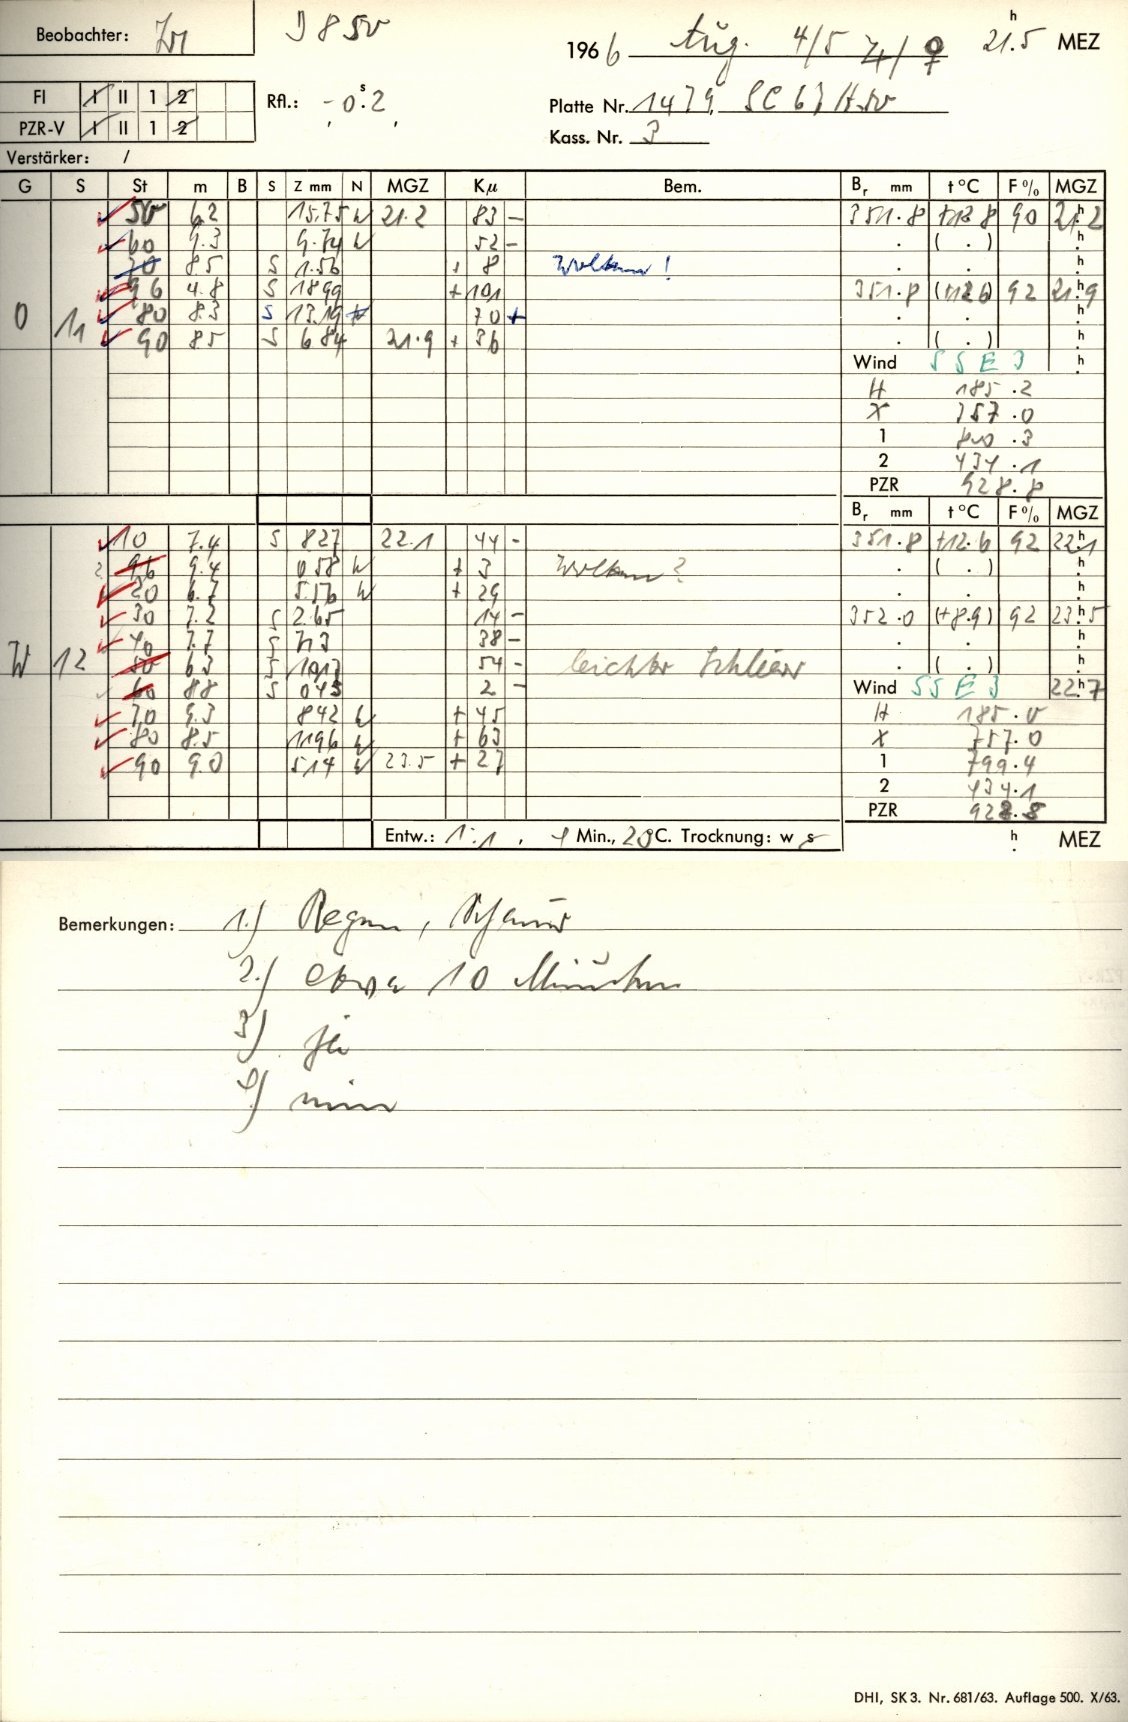 Beobachter:
1966 Aug. 4/5 ♃/♀ 21ʰ.5 MEZ
FI I II 1 2
PZR-V I II 1 2
Rfl.: -0ˢ.2
Platte Nr. 1479,
Kass. Nr. 3
Verstärker: /
G S St m B S Z mm N MGZ Kμ Bem. Br mm t°C F% MGZ
50 6.2 15.75 W 21.2 83 - 351.8 +12.8 90 21ʰ.2
60 9.3 9.74 W 52 - . ( . ) ʰ
70 8.5 S 1.56 + 8 Wolken! . . ʰ
96 4.8 S 18.99 + 101 351.8 (+12.6) 92 21ʰ.9
O 11 80 8.3 S 13.19 70 + . . ʰ
90 8.5 S 6.84 21.9 + 36 . ( . ) ʰ
Wind SSE 3 ʰ
H 185.2
X 757.0
1 800.3
2 434.1
PZR 928.8
Br mm t°C F% MGZ
10 7.4 S 8.27 22.1 44 - 351.8 +12.6 92 22ʰ.1
? 96 9.4 0.58 W + 3 Wolken? . ( . ) ʰ
20 6.7 5.56 W + 29 . . ʰ
30 7.2 S 2.65 14 - 352.0 (+8.9) 92 23ʰ.5
40 7.7 S 7.13 38 - . . ʰ
W 12 50 6.3 S 10.17 54 - leichter Schleier . ( . ) ʰ
60 8.8 S 0.45 2 - Wind SSE 3 22ʰ.7
70 9.3 8.42 W + 45 H 185.0
80 8.5 11.96 W + 63 X 757.0
90 9.0 5.14 W 23.5 + 27 1 799.4
2 434.1
PZR 928.8
Entw.: 1:1, 4 Min., 20°C. Trocknung: w s
ʰ MEZ
Bemerkungen: 1.) Regen, Schauer
2.) etwa 10 Minuten
3) ja
4) nein
DHI, SK 3. Nr. 681/63. Auflage 500. X/63.